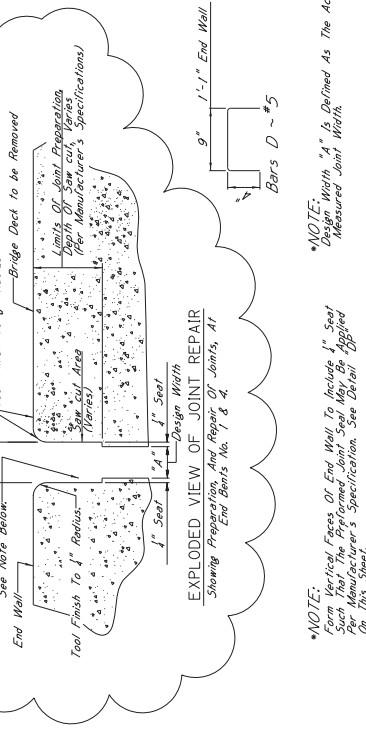 Bridge Deck to be Removed
Limits Of Joint Preparation,
Depth Of Saw cut, Varies
(Per Manufacturer's Specifications)
See Note Below.
End Wall
Tool Finish To ¼" Radius.
Saw cut Area
(Varies)
¼" Seat
"A"
¼" Seat
Design Width
EXPLODED VIEW OF JOINT REPAIR
Showing Preparation, And Repair Of Joints, At
End Bents No. 1 & 4.
9"
1'-1" End Wall
Bars D ~ #5
*NOTE:
Form Vertical Faces Of End Wall To Include ¼" Seat
Such That The Preformed Joint Seal May Be Applied
Per Manufacturer's Specification. See Detail "DP"
On This Sheet.
*NOTE:
Design Width "A" Is Defined As The
Measured Joint Width.